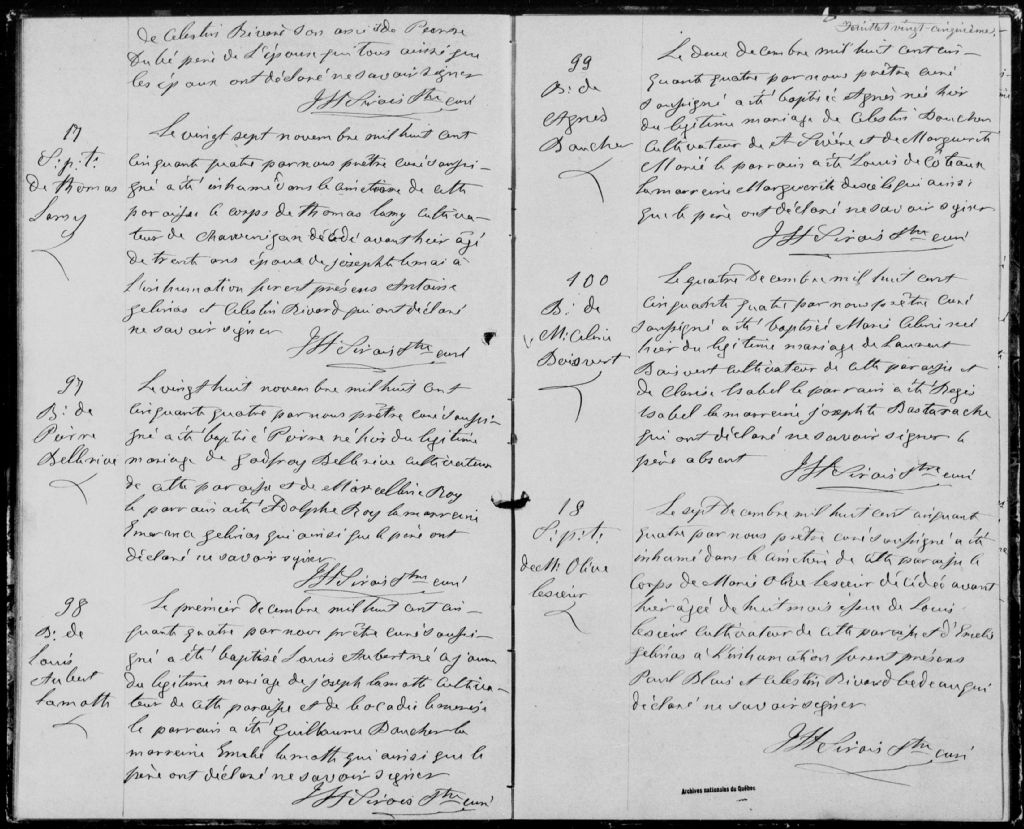 de Celestin Rivard son ami de Pierre
Dubé père de L'épouse qui tous ainsi que
les époux ont déclaré ne savoir signer
JH Sirois Ptre curé
17
S: p: t:
de Thomas
Lamy
Le vingt sept novembre mil huit cent
cinquante quatre par nous prêtre curé soussi-
gné a été inhumé dans le cimetière de cette
paroisse le corps de Thomas Lamy cultiva-
teur de Chawenigan décédé avant hier âgé
de trente ans époux de Josephte Lemai à
L'inhumation furent présens Antoine
Gelinas et Celestin Rivard qui ont déclaré
ne savoir signer
JH Sirois Ptre curé
97
B: de
Pierre
Bellerive
Le vingt huit novembre mil huit cent
cinquante quatre par nous prêtre curé soussi-
gné a été baptisé Pierre né hier du légitime
mariage de Godfroy Bellerive cultivateur
de cette paroisse et de Marcelline Roy
le parrain a été Adolphe Roy la marraine
Emerance Gelinas qui ainsi que le père ont
déclaré ne savoir signer
JH Sirois Ptre curé
98
B: de
Louis
Aubert
Lamotte
Le premier Decembre mil huit cent cin-
quante quatre par nous prêtre curé soussi-
gné a été baptisé Louis Aubert né ce jour
du légitime mariage de Joseph Lamotte cultiva-
teur de cette paroisse et de Leocadie
le parrain a été Guillaume Boucher la
marraine Emelie Lamotte qui ainsi que le
père ont déclaré ne savoir signer
JH Sirois Ptre curé
Feuillet vingt-cinquième.
99
B: de
Agnès
Boucher
Le deux decembre mil huit cent cin-
quante quatre par nous prêtre curé
soussigné a été baptisée Agnès née hier
du légitime mariage de Celestin Boucher
cultivateur de St Sévère et de Marguerite
Marié le parrain a été Louis
la marraine Marguerite qui ainsi
que le père ont déclaré ne savoir signer
JH Sirois Ptre curé
100
B: de
M: Celina
Boisvert
Le quatre Decembre mil huit cent
cinquante quatre par nous prêtre curé
soussigné a été baptisée Marie Celine née
hier du légitime mariage de Laurent
Boisvert cultivateur de cette paroisse et
de Clarise Isabel le parrain a été Régis
Isabel la marraine Josephte Bastarache
qui ont déclaré ne savoir signer le
père absent
JH Sirois Ptre curé
18
S: p: t:
de M: Olive
Lesieur
Le sept Decembre mil huit cent cinquante
quatre par nous prêtre curé soussigné a été
inhumé dans le cimetière de cette paroisse le
corps de Marie Olive Lesieur décédée avant
hier âgée de huit mois issue de Louis
Lesieur cultivateur de cette paroisse et d'Emelie
Gelinas à L'inhumation furent présens
Paul Blais et Celestin Rivard bedeau qui
déclaré ne savoir signer
JH Sirois Ptre curé
Archives nationales du Québec